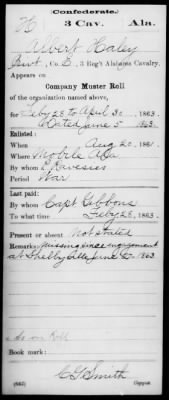 Confederate.
H 3 Cav. Ala.
Albert Haley
Pvt, Co. E, 3 Reg't Alabama Cavalry.
Appears on
Company Muster Roll
of the organization named above,
for Feby 28 to April 30, 1863.
Dated June 5 1863
Enlisted:
When Aug 20, 1861.
Where Mobile Ala
By whom Ravesies
Period War
Last paid:
By whom Capt Gibbons
To what time Feby 28, 1863.
Present or absent Not stated
Remarks: Missing since engagement
at Shelbyville June 27 1863
as on Roll
Book mark:
C G Smith
(642) Copyist.